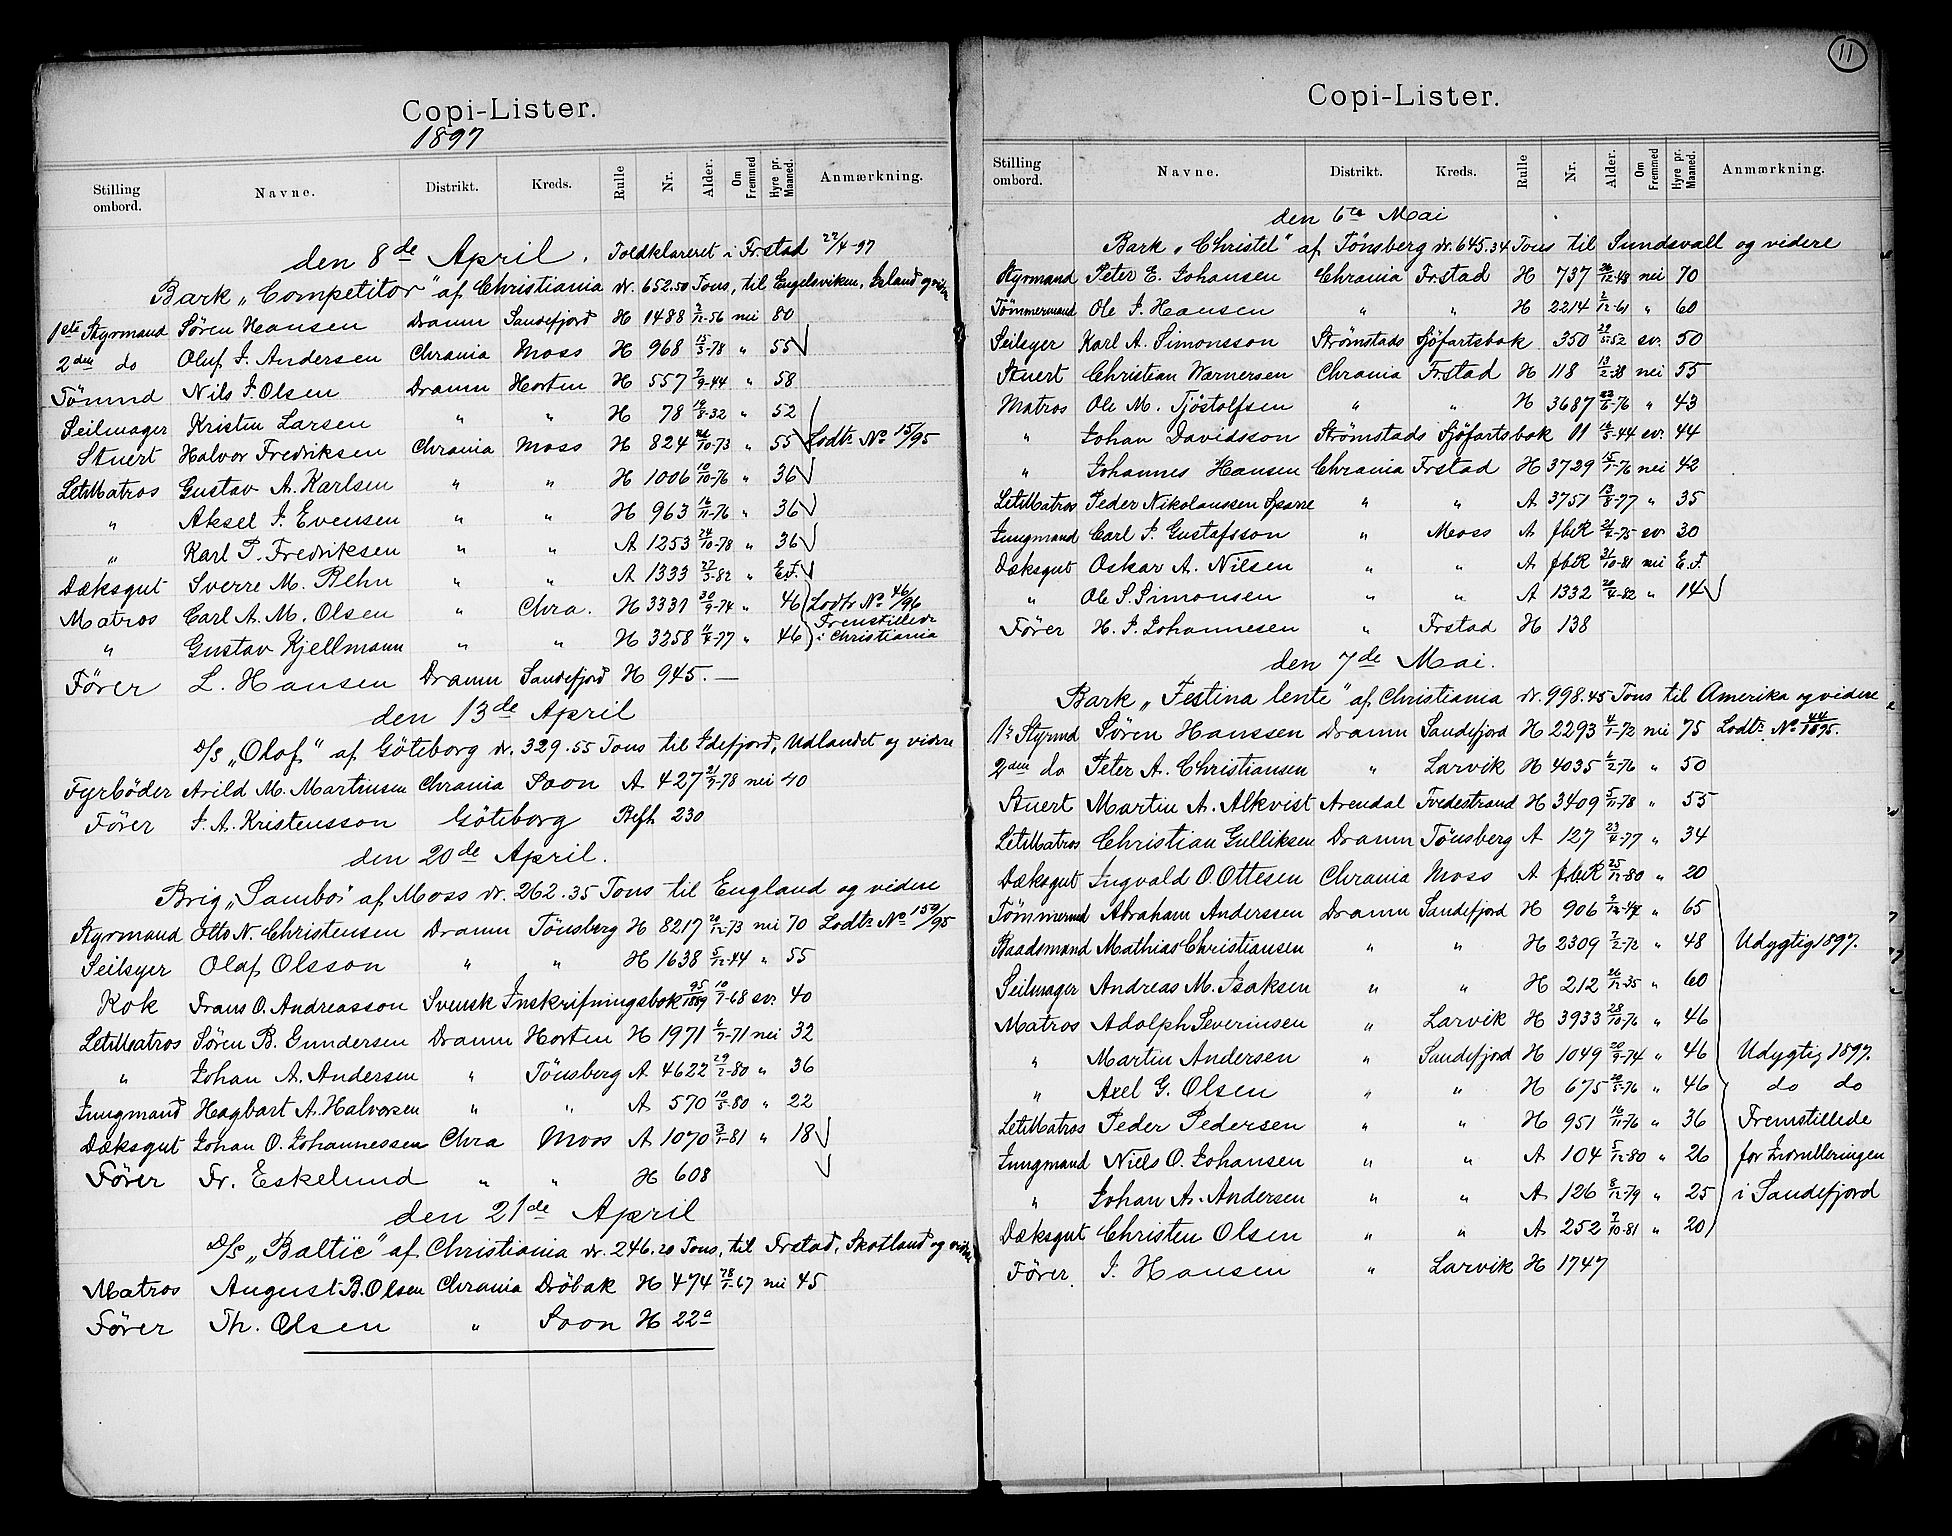 Copi-Lister.
1897
Stilling ombord. Navne. Distrikt. Kreds. Rulle Nr. Alder. Om Fremmed Hyre pr. Maaned. Anmærkning.
den 8de April. Toldklareret i Fr.stad 22/4-97
Bark „Competitor" af Christiania dr. 652.50 Tons, til Engelsviken, Island og videre
1ste Styrmand Søren Hansen Dramn Sandefjord H 1488 2/12-56 nei 80
2den do Oluf J. Andersen Chrania Moss H 968 15/3-78 „ 55
Tømmd Nils J. Olsen Dramn Horten H 557 2/9-44 „ 58
Seilmager Kristen Larsen „ „ H 78 19/8-32 „ 52
Stuert Halvor Fredriksen Chrania Moss H 824 26/10-73 „ 55 Lodtr No 15/95
LetMatros Gustav A. Karlsen „ „ H 1006 10/10-76 „ 36
„ Aksel J. Evensen „ „ H 963 16/11-76 „ 36
„ Karl P. Fredriksen „ „ A 1253 24/10-78 „ 36
Dæksgut Sverre M. Rehn „ „ A 1333 27/3-82 „ E.F.
Matros Carl A. M. Olsen „ Chra. H 3331 30/9-74 „ 46 Lodtr No 46/96
„ Gustav Kjellmann „ „ H 3258 11/4-77 „ 46 Fremstilledes i Christiania
Fører L. Hansen Dramn Sandefjord H 945. —
den 13de April
D/S „Olof" af Göteborg dr. 329.55 Tons til Idefjord, Udlandet og videre
Fyrbøder Arild M. Martinsen Chrania Soon A 427 21/7-78 nei 40
Fører J. A. Kristensson Göteborg Befh 230
den 20de April.
Brig „Sambo" af Moss dr. 262.35 Tons til England og videre
Styrmand Otto N. Christensen Dramn Tönsberg H 8217 20/12-73 nei 70 Lodtr No 159/95
Seilsyer Olaf Olsson „ „ H 1638 5/12-44 „ 55
Kok Frans O. Andreasson Svensk Inskrifningsbok 95/1889 10/7-68 sv. 40
LetMatros Søren B. Gundersen Dramn Horten H 1971 6/7-71 nei 32
„ Johan A. Andersen „ Tönsberg A 4622 29/2-80 „ 36
Jungmand Hagbart A. Halvorsen „ „ A 570 10/5-80 „ 22
Dæksgut Johan O. Johannessen Chra Moss A 1070 3/1-81 „ 18
Fører Fr. Eskelund „ „ H 608
den 21de April
D/S „Baltic" af Christiania dr. 246.20 Tons, til Fr.stad, Skotland og videre
Matros August B. Olsen Chrania Dröbak H 474 28/1-67 nei 45
Fører Th. Olsen „ Soon H 22a
11
Copi-Lister.
Stilling ombord. Navne. Distrikt. Kreds. Rulle Nr. Alder. Om Fremmed Hyre pr. Maaned. Anmærkning.
den 6te Mai
Bark „Christel" af Tönsberg dr. 645.34 Tons til Sundsvall og videre
Styrmand Peter E. Johansen Chrania Fr.stad H 737 26/12-48 nei 70
Tömmermand Ole J. Hansen „ „ H 2214 2/12-61 „ 60
Seilsyer Karl A. Simonsson Strömstads Sjöfartsbok 350 29/5-52 sv. 50
Stuert Christian Wernersen Chrania Fr.stad H 118 13/2-38 nei 55
Matros Ole M. Tjöstolfsen „ „ H 3687 23/6-76 „ 43
„ Johan Davidsson Strömstads Sjöfartsbok 11 16/5-44 sv. 44
„ Johannes Hansen Chrania Fr.stad H 3729 15/1-76 nei 42
LetMatros Peder Nikolaussen Sparre „ „ A 3751 13/8-77 „ 35
Jungmand Carl J. Gustafsson „ Moss A fbR 21/2-75 sv. 30
Dæksgut Oskar A. Nilsen „ „ A fbR 31/10-81 nei E.F.
„ Ole S. Simonsen „ „ A 1332 20/4-82 „ 14
Fører H. J. Johannesen „ Fr.stad H 138
den 7de Mai.
Bark „Festina lente" af Christiania dr. 998.45 Tons til Amerika og videre
1s Styrmd Søren Hanssen Dramn Sandefjord H 2293 4/1-72 nei 75 Lodtr No 44/1895.
2den do Peter A. Christiansen „ Larvik H 4035 6/2-76 „ 50
Stuert Martin A. Alkvist Arendal Tvedestrand H 3409 5/11-78 „ 55
LetMatros Christian Gulliksen Dramn Tönsberg A 127 23/4-77 „ 34
Dæksgut Ingvald O. Ottesen Chrania Moss A fbR 25/11-80 „ 20
Tömmermd Abraham Anderssen Dramn Sandefjord H 906 2/12-47 „ 65
Baadsmand Mathias Christiansen „ „ H 2309 7/2-72 „ 48 Udygtig 1897.
Seilmager Andreas M. Isaksen „ „ H 212 26/12-35 „ 60
Matros Adolph Severinsen „ Larvik H 3933 28/10-76 „ 46
„ Martin Andersen „ Sandefjord H 1049 20/9-74 „ 46 Udygtig 1897.
„ Axel G. Olsen „ „ H 675 20/5-76 „ 46 do do
LetMatros Peder Pedersen „ „ H 951 16/11-76 „ 36 Fremstillede
Jungmand Niels O. Johansen „ „ A 104 5/12-80 „ 26 for Inrulleringen
„ Johan A. Andersen „ „ A 126 8/12-79 „ 25 i Sandefjord
Dæksgut Christen Olsen „ „ A 252 7/10-81 „ 20
Fører J. Hansen „ Larvik H 1747